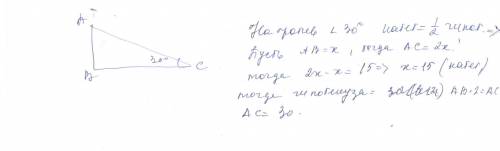 A
B
30°
C
Напротив ∠30° катет = 1/2 гипот. =>
Пусть AB = x, тогда AC = 2x
тогда 2x - x = 15 => x = 15 (катет)
тогда гипотенуза = AB · 2 = AC
AC = 30.